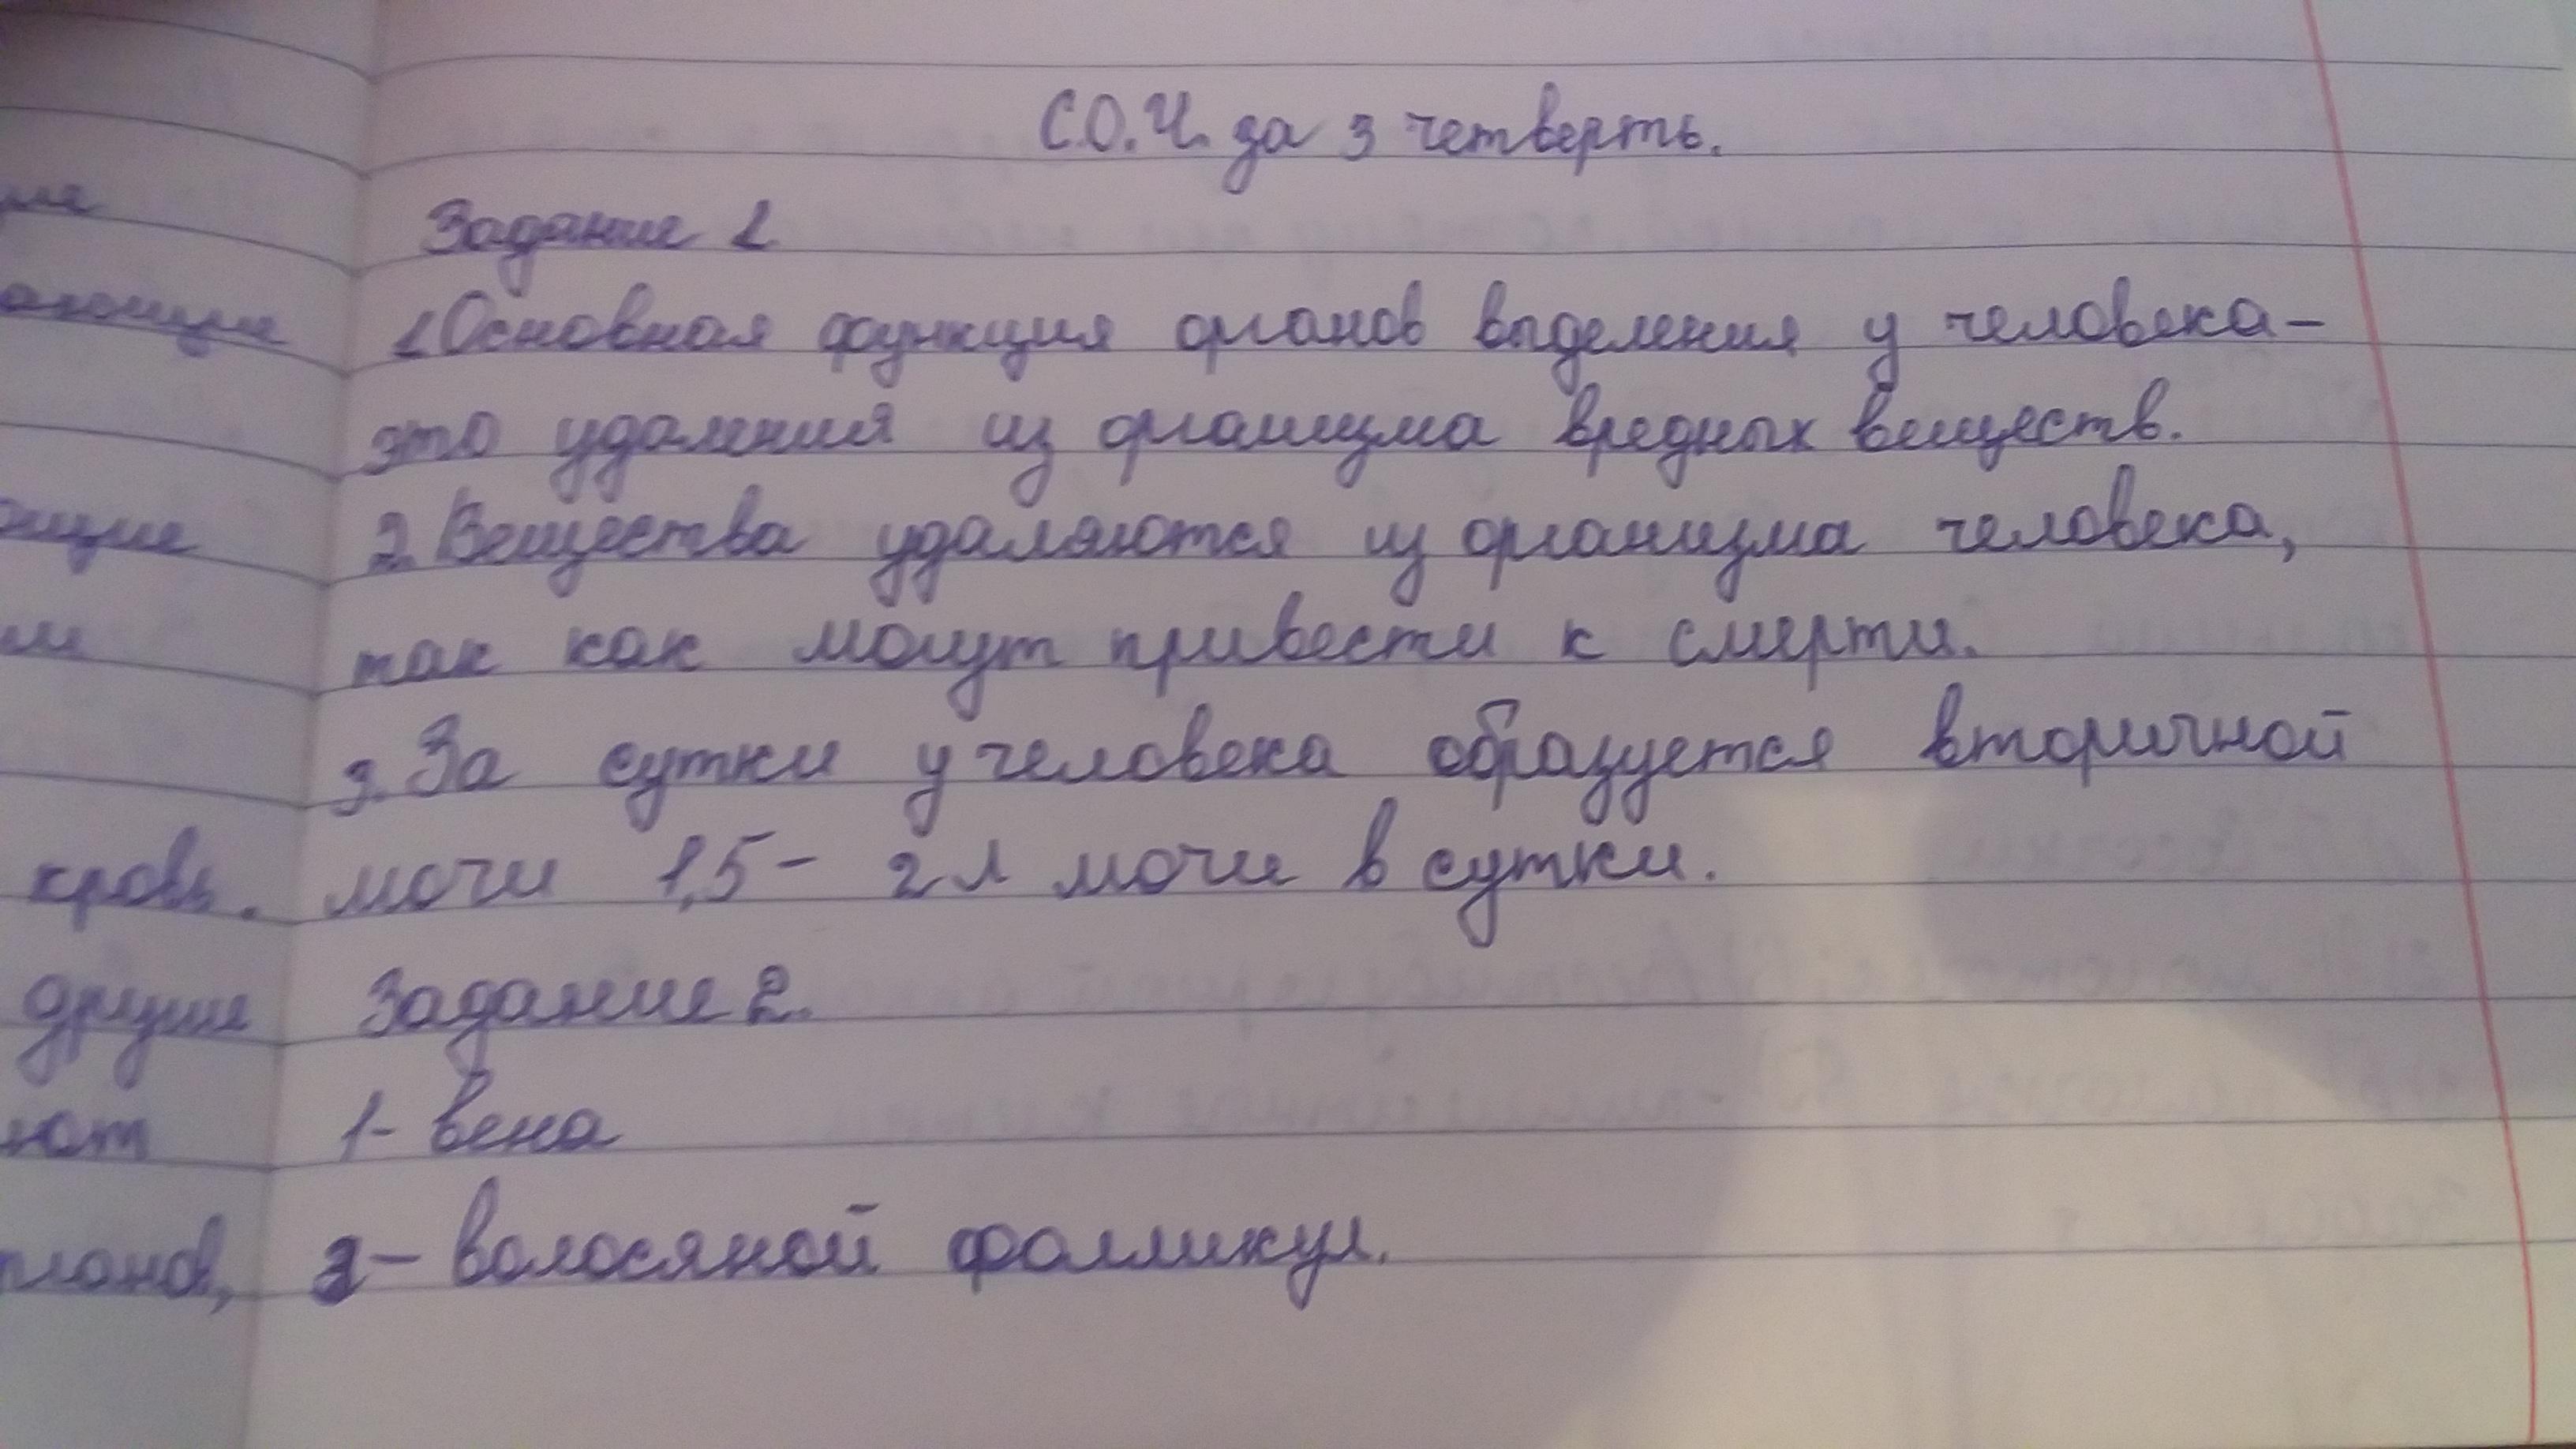 С.О.Ч. за 3 четверть.
Задание 1
1 Основная функция органов выделения у человека-
это удаления из организма вредных веществ.
2. Вещества удаляются из организма человека,
так как могут привести к смерти.
3. За сутки у человека образуется вторичной
кровь. мочи 1,5- 2 л мочи в сутки.
другие Задание 2.
1- вена
2- волосяной фолликул.